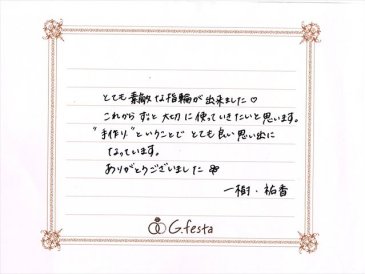 とても素敵な指輪が出来ました♡
これからずっと大切に使っていきたいと思います。
"手作り"ということでとても良い思い出に
なっています。
ありがとうございました
一樹・祐香
G.festa